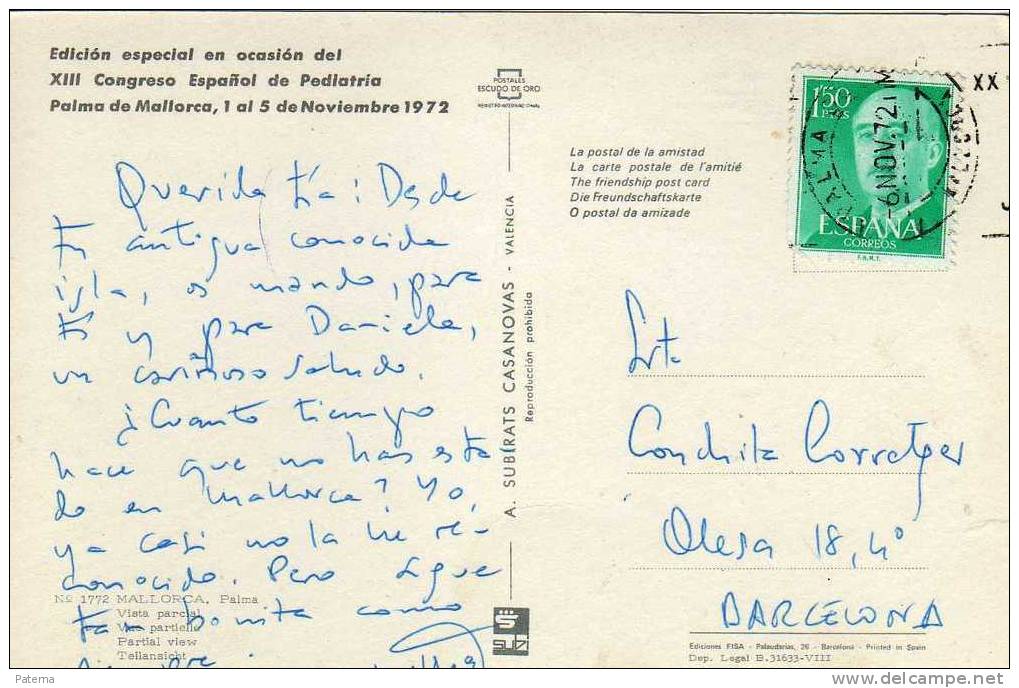 Edición especial en ocasión del
XIII Congreso Español de Pediatría
Palma de Mallorca, 1 al 5 de Noviembre 1972
Querida tía: Desde
tu antigua conocida
isla, os mando, para
tí y para Daniela,
un cariñoso saludo.
¿Cuanto tiempo
hace que no has esta
do en Mallorca? Yo
ya casi no la he re-
conocido. Pero sigue
tan bonita como
siempre.
Nº 1772 MALLORCA. Palma
Vista parcial
Vue partielle
Partial view
Teilansicht
POSTALES
ESCUDO DE ORO
REGISTRO INTERNACIONAL
A. SUBIRATS CASANOVAS - VALENCIA
Reproducción prohibida
SUBI
La postal de la amistad
La carte postale de l'amitié
The friendship post card
Die Freundschaftskarte
O postal da amizade
1'50
PTAS
ESPAÑA
CORREOS
F.N.M.T.
PALMA
-6 NOV. 72
XX
Srta
Conchita Corretger
Olesa 18, 4º
BARCELONA
Ediciones FISA - Palaudarias, 26 - Barcelona - Printed in Spain
Dep. Legal B.31633-VIII
Paterna
delcampe.net